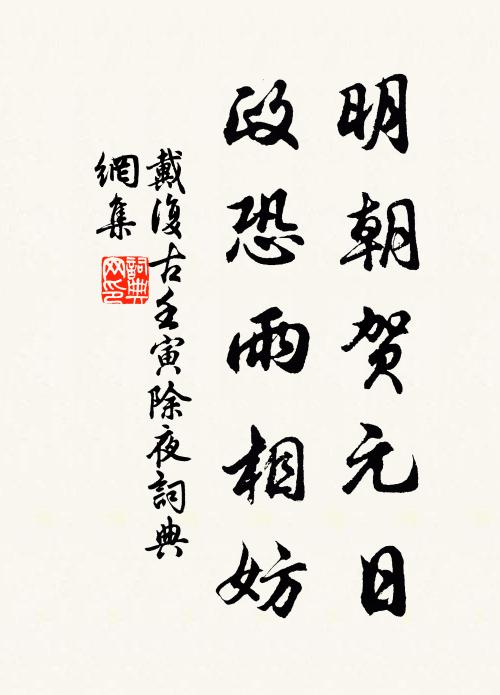 明朝贺元日
政恐雨相妨
戴復古壬寅除夜詞典
網集
詞典网印